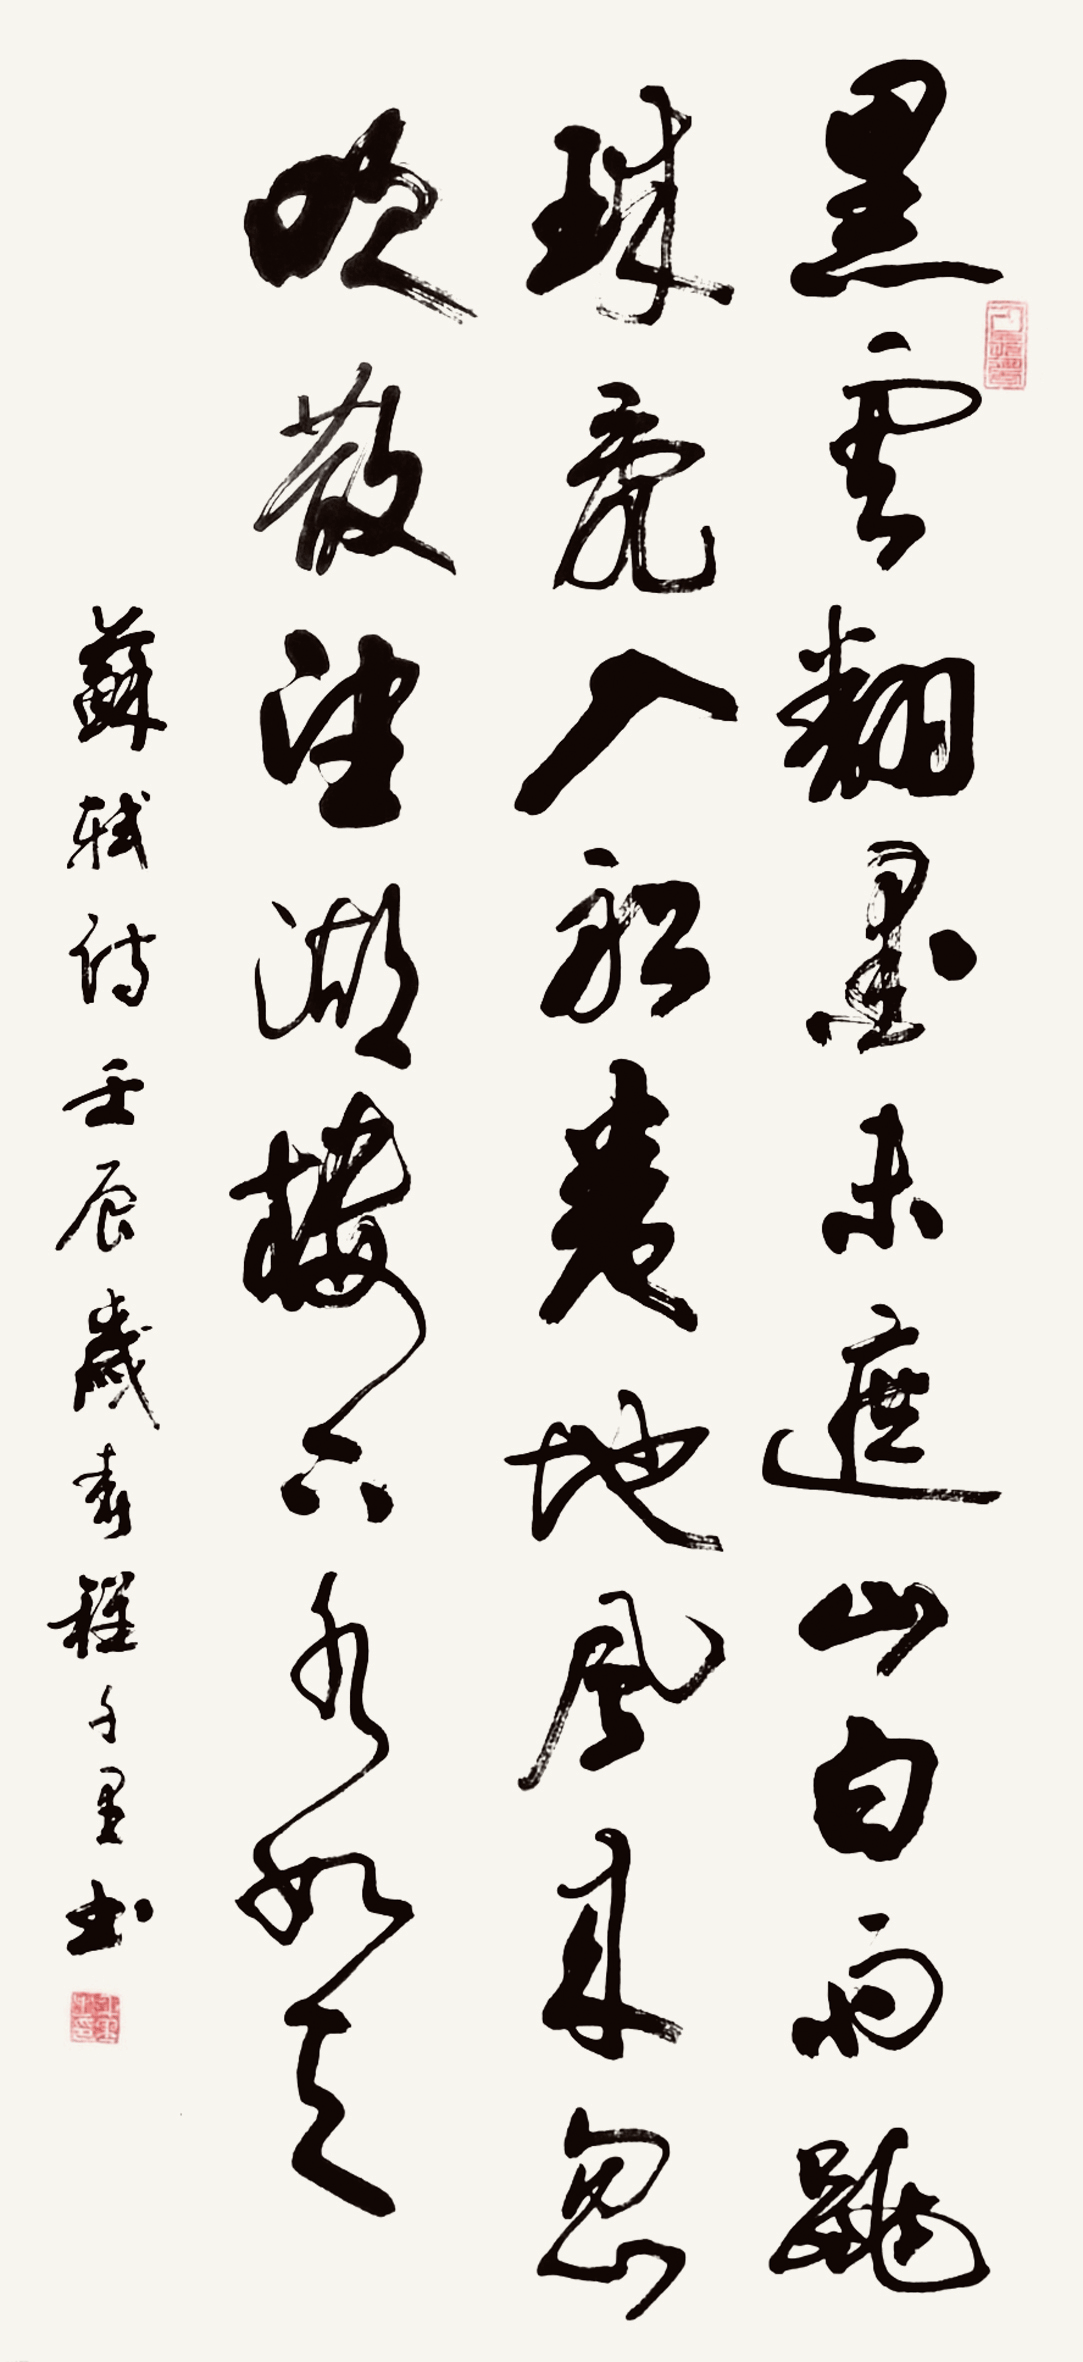 黑雲翻墨未遮山白雨跳
珠亂入船卷地風來忽
吹散望湖樓下水如天
蘇軾詩壬辰歲程千里书